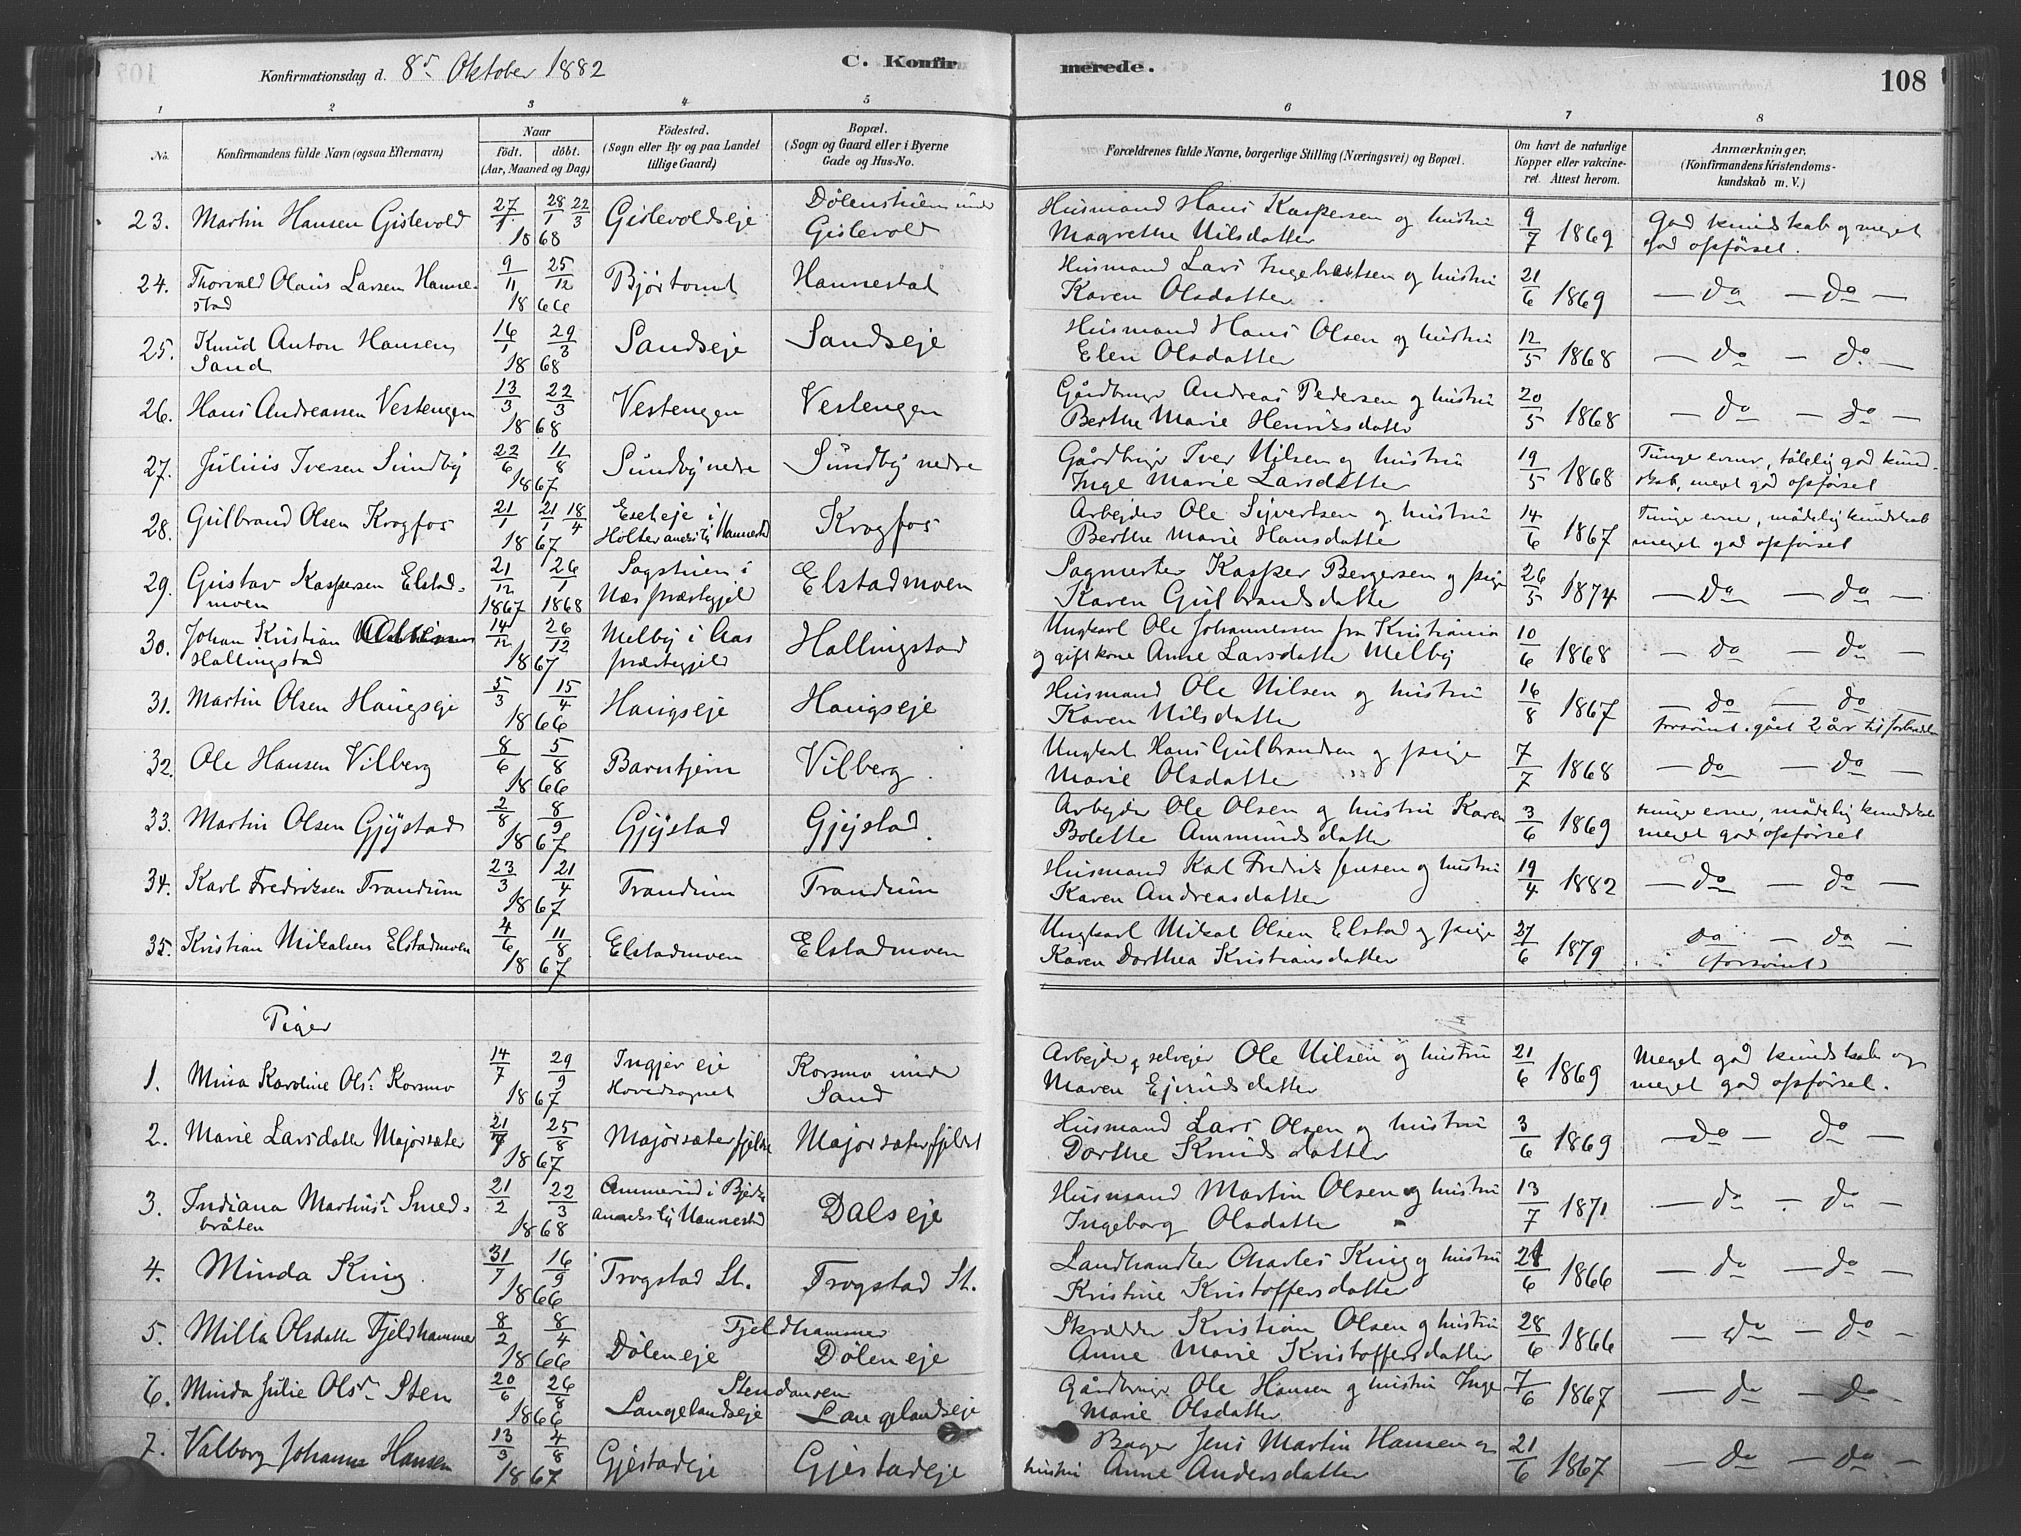 Konfirmationsdag d. 8de Oktober 1882
C. Konfirmerede.
108
1 2 3 4 5 6 7 8
No.
Konfirmandens fulde Navn (ogsaa Efternavn)
Naar
födt. döbt.
(Aar, Maaned og Dag)
Födested.
(Sogn eller By og paa Landet
tillige Gaard)
Bopæl.
(Sogn og Gaard eller i Byerne
Gade og Hus-No.
Forældrenes fulde Navne, borgerlige Stilling (Næringsvei) og Bopæl.
Om havt de naturlige
Kopper eller vakcine-
ret. Attest herom.
Anmærkninger.
(Konfirmandens Kristendoms-
kundskab m. V.)
23. Martin Hansen Gislevold 27/1 28/1 22/3 1868 Gislevoldseje Dölenstuen under Gislevold Husmand Hans Kaspersen og hustru Magrethe Nilsdatter 9/7 1869 God kundskab og meget god opførsel.
24. Thorvald Olaus Larsen Hannestad 9/11 25/12 1866 Björtomt Hannestad Husmand Lars Ingebretsen og hustru Karen Olsdatter 21/6 1869 — do — do —
25. Knud Anton Hansen Sand 16/1 29/3 1868 Sandseje Sandseje Husmand Hans Olsen og hustru Elen Olsdatter 12/5 1868 — do — do —
26. Hans Andreassen Vestengen 13/3 22/3 1868 Vestengen Vestengen Gårdbruger Andreas Pedersen og hustru Berthe Marie Henriksdatter 20/5 1868 — do — do —
27. Julius Iversen Sundby 22/6 11/8 1867 Sundby nedre Sundby nedre Gårdbruger Iver Nilsen og hustru Inge Marie Larsdatter 19/5 1868 Tunge evner, tålelig god kundskab, meget god opførsel
28. Gulbrand Olsen Krogfos 21/1 21/1 18/4 1867 Eseteje i Holter Hannestad Krogfos Arbejder Ole Syvertsen og hustru Berthe Marie Hansdatter 14/6 1867 Tunge evner, mådelig kundskab meget god opførsel
29. Gustav Kaspersen Elstadmoen 21/12 1867 26/1 1868 Sagstuen i Næs præstegjeld Elstadmoen Sagmester Kasper Bergersen og pige Karen Gulbrandsdatter 26/5 1874 — do — do —
30. Johan Kristian Hallingstad 14/12 26/12 1867 Melby i Aas præstegjeld Hallingstad Ungkarl Ole Johannessen fra Kristiania og gift kone Anne Larsdatter Melby 10/6 1868 — do — do —
31. Martin Olsen Haugseje 5/3 15/4 1866 Haugseje Haugseje Husmand Ole Nilsen og hustru Karen Nilsdatter 16/8 1867 — do — do — forsømt. gået 2 år til forberedelse
32. Ole Hansen Vilberg 8/6 5/8 1866 Barntjern Vilberg Ungkarl Hans Gulbrandsen og pige Marie Olsdatter 7/7 1868 — do — do —
33. Martin Olsen Gjøstad 2/8 8/9 1867 Gjøstad Gjøstad. Arbejder Ole Olsen og hustru Karen Bolette Ammundsdatter 3/6 1869 tunge evner, mådelig kundskab meget god opførsel
34. Karl Fredriksen Trandum 23/3 21/4 1867 Trandum Trandum Husmand Karl Fredrik Jensen og hustru Karen Andreasdatter 19/4 1882 — do — do —
35. Kristian Mikalsen Elstadmoen 4/6 11/8 1867 Elstadmoen Elstadmoen Ungkarl Mikal Olsen Elstad og pige Karen Dorthea Kristiansdatter 27/6 1879 do — do — (forsømt)
Piger
1. Mina Karoline Olsdr Korsmo 14/7 29/9 1867 Ingjer eje Hovedsognet Korsmo under Sand Arbejder & selvejer Ole Nilsen og hustru Maren Ejvindsdatter 21/6 1869 Meget god kundskab og meget god opførsel.
2. Marie Larsdatter Majorsæter 21/7 25/8 1867 Majorsæterfjeldet Majorsæterfjeldet Husmand Lars Olsen og hustru Dorthe Knudsdatter 3/6 1869 — do — do —
3. Indiana Martinsdr Smedbråten 21/2 22/3 1868 Ammerud i Hannestad Dalseje Husmand Martin Olsen og hustru Ingeborg Olsdatter 13/7 1871 — do — do —
4. Minda King. 31/7 16/9 1866 Trogstad St. Trogstad St. Landhandler Charles King og hustru Kristine Kristoffersdatter 21/6 1866 — do — do —
5. Milla Olsdatter Fjeldhammer 8/2 8/4 1866 Dölen eje Fjeldhammer Dölen eje Skrædder Kristian Olsen og hustru Anne Marie Kristoffersdatter 28/6 1866 — do — do —
6. Minda Julie Olsdr Sten 20/6 26/8 1866 Langelandseje Stendansen Langelandseje Gårdbruger Ole Hansen og hustru Inge Marie Olsdatter 7/6 1867 — do — do —
7. Valborg Johanne Hansen 13/3 4/8 1867 Gjestadeje Gjestadeje Bager Jens Martin Hansen og hustru Anne Andersdatter 21/6 1867 — do — do —